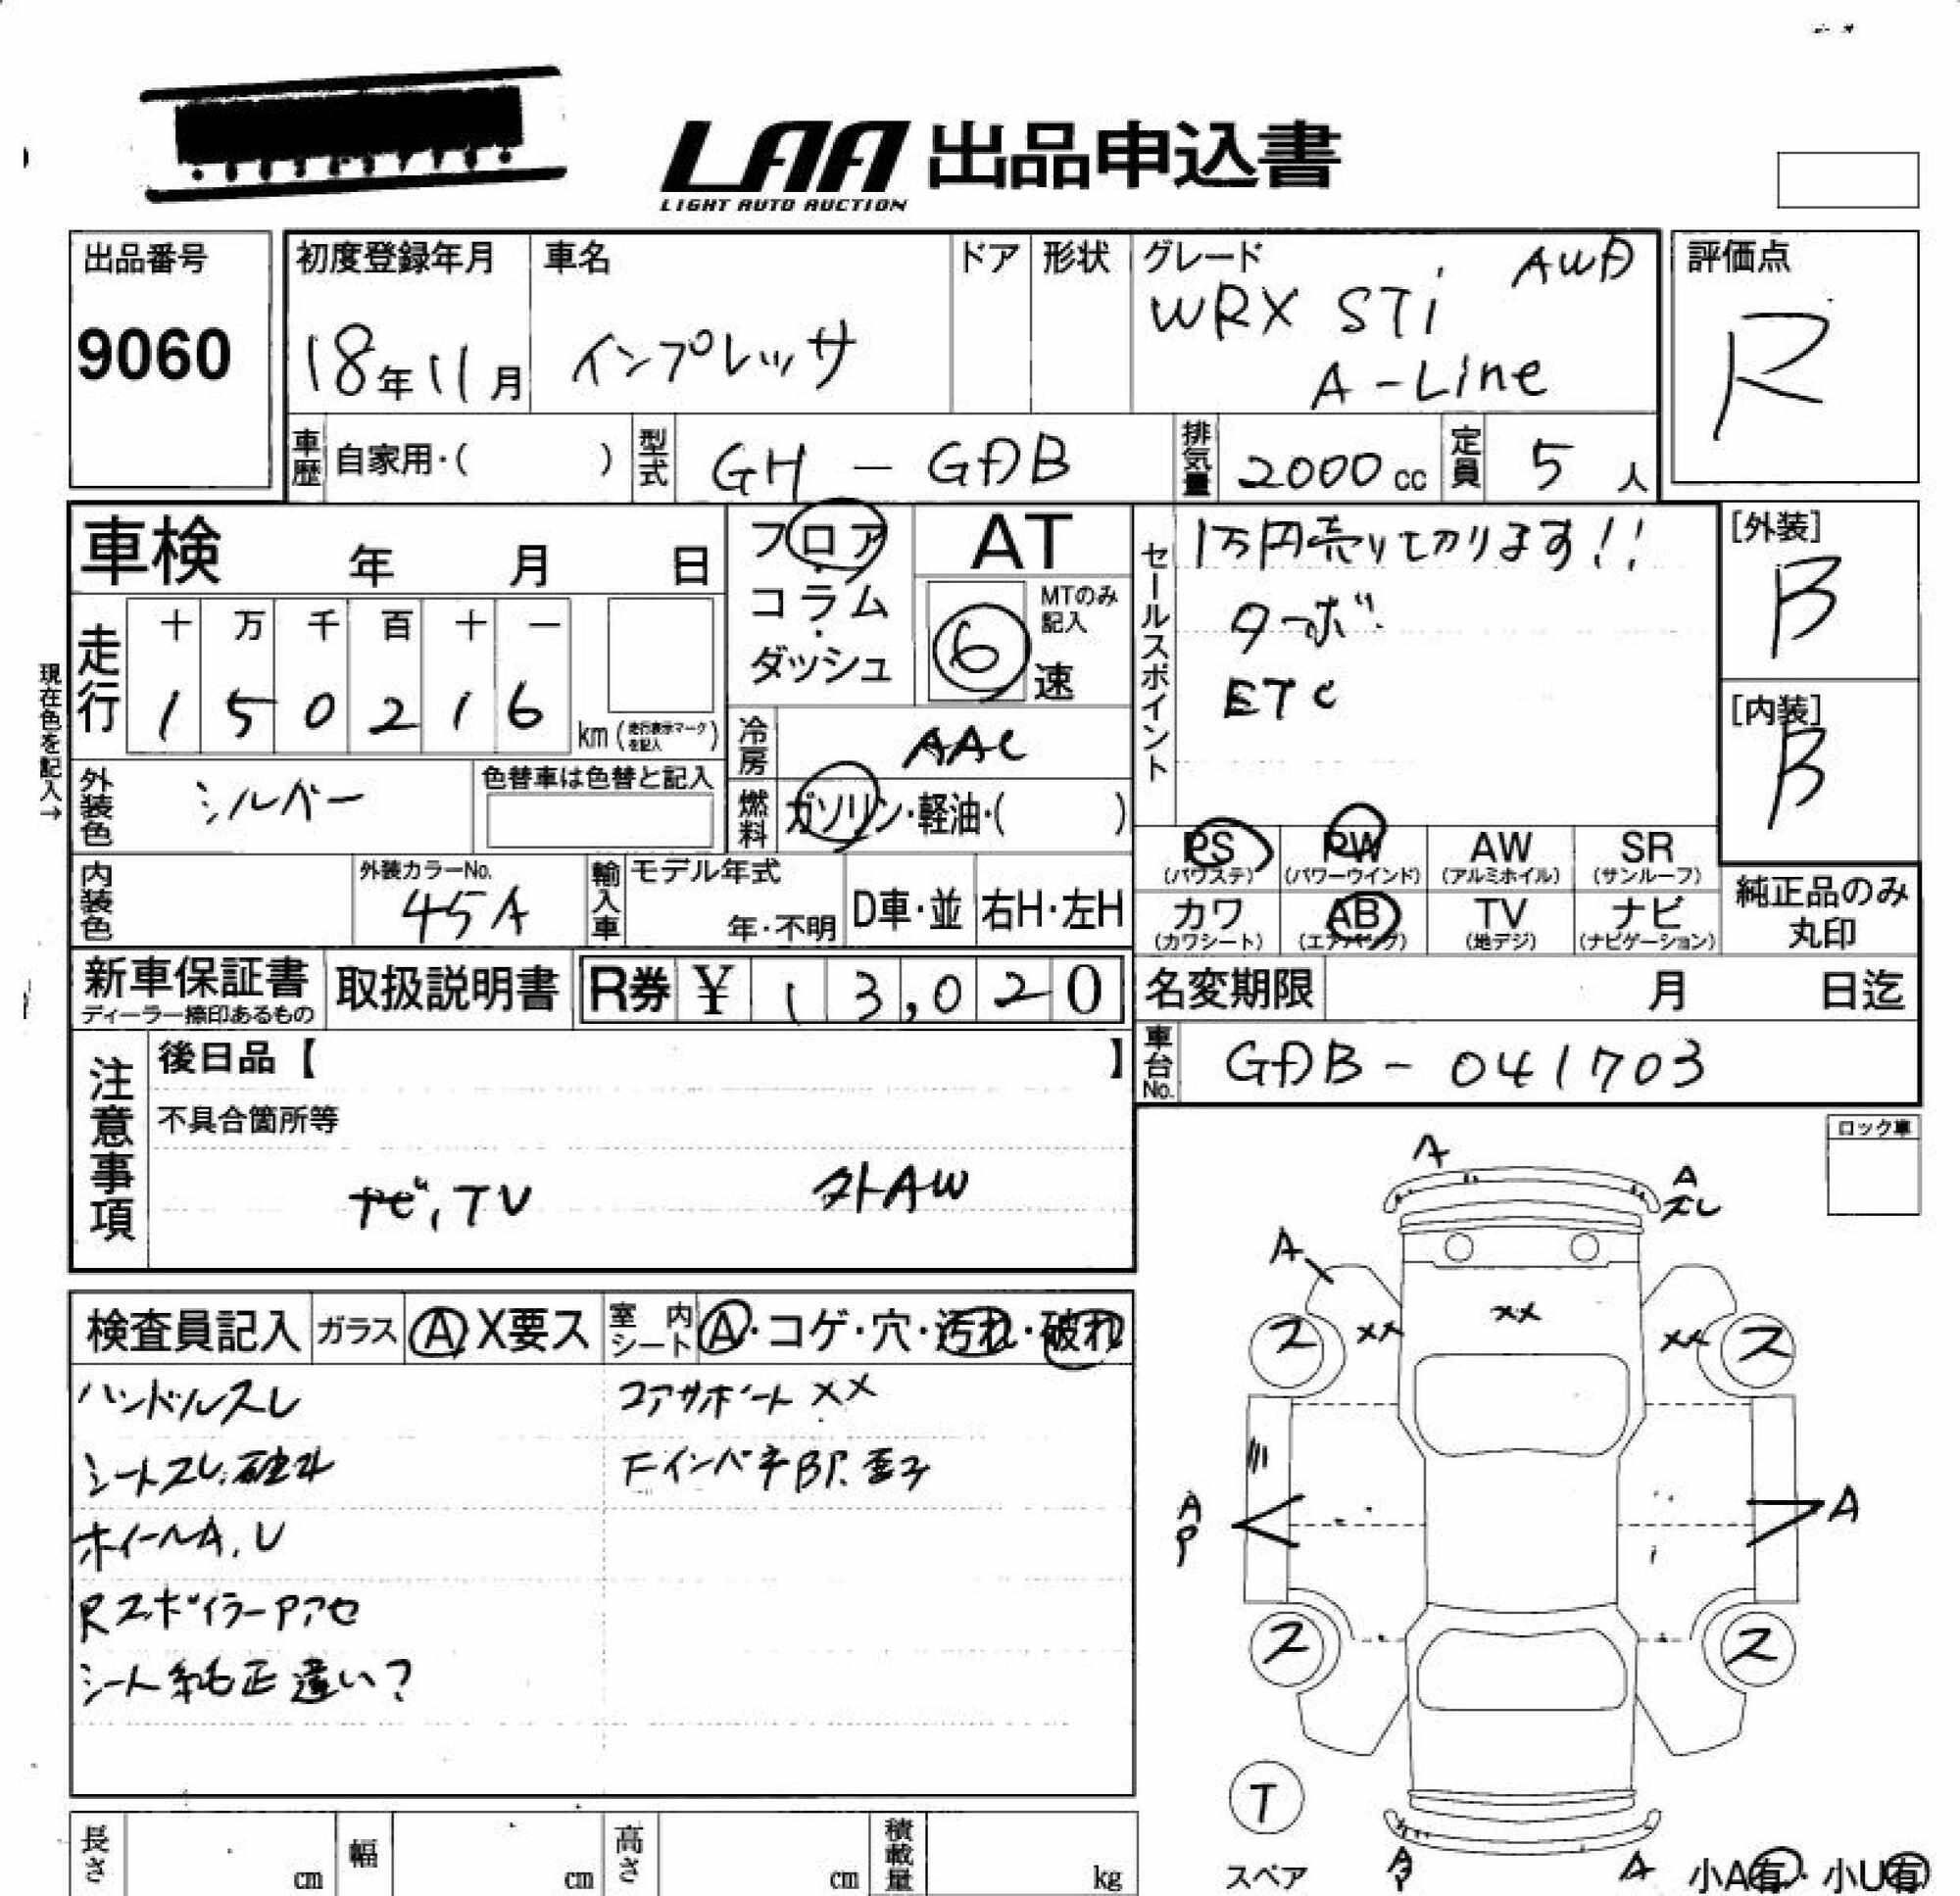 LAA 出品申込書
LIGHT AUTO AUCTION
出品番号
9060
初度登録年月
18年11月
車名
インプレッサ
ドア
形状
グレード
AWD
WRX STi
A-Line
評価点
R
車歴 自家用・( )
型式 GH - GDB
排気量 2000cc
定員 5人
車検 年 月 日
走行 十 万 千 百 十 一
1 5 0 2 1 6 km(走行表示マークを記入)
現在色を記入→
フロア・コラム・ダッシュ
AT
MTのみ記入
6速
冷房 AAC
燃料 ガソリン・軽油・( )
セールスポイント
1万円売りて切ります!!
ターボ
ETC
[外装]
B
[内装]
B
外装色 シルバー
色替車は色替と記入
内装色
外装カラーNo.
45A
輸入車
モデル年式
年・不明
D車・並
右H・左H
PS (パワステ)
PW (パワーウインド)
AW (アルミホイル)
SR (サンルーフ)
カワ (カワシート)
AB (エアバッグ)
TV (地デジ)
ナビ (ナビゲーション)
純正品のみ
丸印
新車保証書
ディーラー捺印あるもの
取扱説明書
R券 ¥ 13,020
名変期限 月 日迄
車台No. GDB-041703
注意事項
後日品【 】
不具合箇所等
ナビ,TV 外AW
ロック車
検査員記入
ガラス Ⓐ X要ス
室内シート Ⓐ・コゲ・穴・汚れ・破れ
ハンドルスレ
シートスレ.破れ
ホイールA.U
Rスポイラーアセ
シート純正違い?
コアサポート XX
A
A
ズレ
A
XX
XX
XX
ス
ス
A
P
A
ス
ス
T
スペア
A
小A有・小U有
長さ cm
幅 cm
高さ cm
積載量 kg